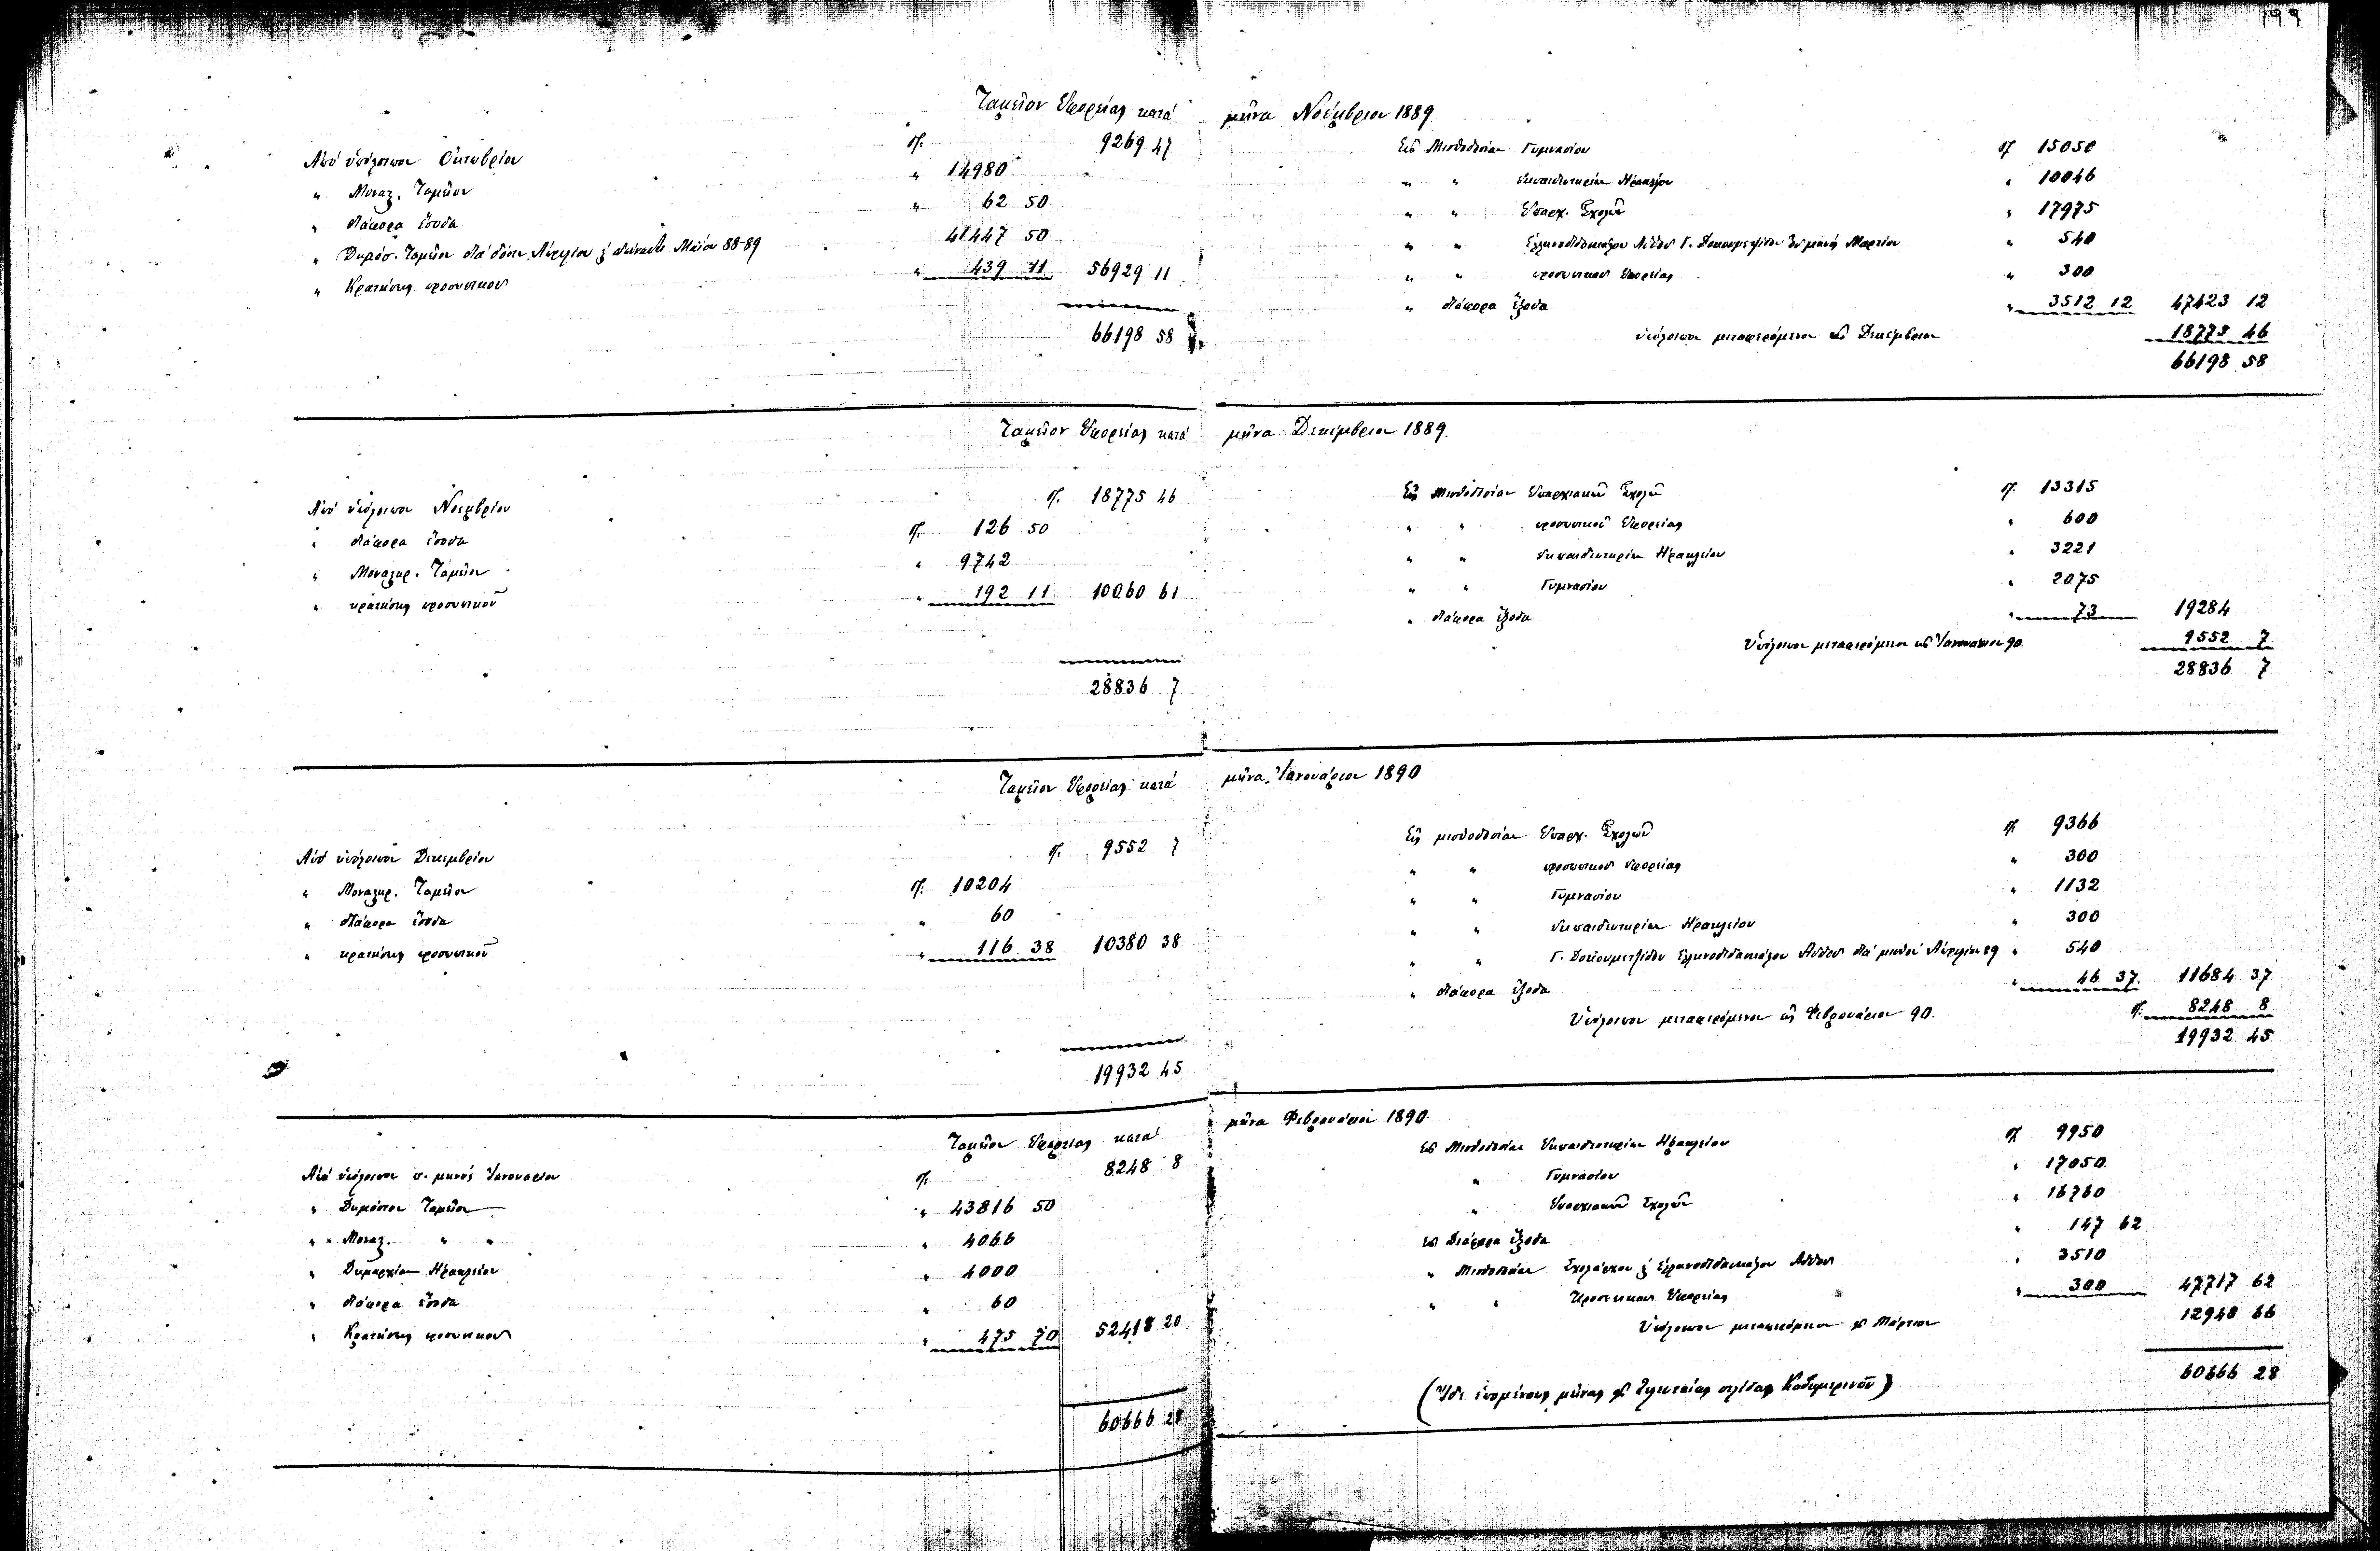 199
Ταμεῖον Ἐφορείας κατὰ μῆνα Νοέμβριον 1889.
Ἀπὸ ὑπόλοιπον Ὀκτωβρίου 9269 47
" Μοναχ. Ταμεῖον " 14980
" διάφορα ἔσοδα " 62 50
" Δημόσ. Ταμεῖον διὰ δόσιν Ἀπριλίου & Μαΐου 88-89 41447 50
" Κρατήσεις προσωπικοῦ " 439 11 56929 11
66198 58
Εἰς Μισθοδοσίαν Γυμνασίου 15050
" " Ἐκπαιδευτηρίων Ἡρακλείου " 10046
" " Ἐπαρχ. Σχολῶν " 17975
" " Ἑλληνοδιδασκάλου Γ. μηνὸς Μαρτίου " 540
" " προσωπικοῦ Ἐφορείας " 300
" διάφορα ἔξοδα " 3512 12 47423 12
ὑπόλοιπον μεταφερόμενον εἰς Δεκέμβριον 18775 46
66198 58
Ταμεῖον Ἐφορείας κατὰ μῆνα Δεκέμβριον 1889.
Ἀπὸ ὑπόλοιπον Νοεμβρίου 18775 46
" διάφορα ἔσοδα 126 50
" Μοναχηρ. Ταμεῖον " 9742
" κρατήσεις προσωπικοῦ " 192 11 10060 61
28836 7
Εἰς Μισθοδοσίαν Ἐπαρχιακῶν Σχολῶν 13315
" " προσωπικοῦ Ἐφορείας " 600
" " Ἐκπαιδευτηρίων Ἡρακλείου " 3221
" " Γυμνασίου " 2075
" διάφορα ἔξοδα " 73 19284
Ὑπόλοιπον μεταφερόμενον εἰς Ἰανουάριον 90. 9552 7
28836 7
Ταμεῖον Ἐφορείας κατὰ μῆνα Ἰανουάριον 1890
Ἀπὸ ὑπόλοιπον Δεκεμβρίου 9552 7
" Μοναχηρ. Ταμεῖον 10204
" διάφορα ἔσοδα " 60
" κρατήσεις προσωπικοῦ " 116 38 10380 38
19932 45
Εἰς μισθοδοσίαν Ἐπαρχ. Σχολῶν 9366
" " προσωπικοῦ Ἐφορείας " 300
" " Γυμνασίου " 1132
" " Ἐκπαιδευτηρίων Ἡρακλείου " 300
" " Γ. Ἑλληνοδιδασκάλου διὰ μισθὸν Ἀπριλίου 89 " 540
" διάφορα ἔξοδα " 46 37 11684 37
Ὑπόλοιπον μεταφερόμενον εἰς Φεβρουάριον 90. 8248 8
19932 45
Ταμεῖον Ἐφορείας κατὰ μῆνα Φεβρουάριον 1890.
Ἀπὸ ὑπόλοιπον π. μηνὸς Ἰανουαρίου 8248 8
" Δημόσιον Ταμεῖον " 43816 50
" Μοναχ. " " 4066
" Δημαρχίαν Ἡρακλείου " 4000
" διάφορα ἔσοδα " 60
" Κρατήσεις προσωπικοῦ " 475 70 52418 20
60666 28
Εἰς Μισθοδοσίαν Ἐκπαιδευτηρίων Ἡρακλείου 9950
" Γυμνασίου " 17050
" Ἐπαρχιακῶν Σχολῶν " 16760
Εἰς Διάφορα ἔξοδα " 147 62
" Μισθοδοσίαν Σχολάρχου & Ἑλληνοδιδασκάλου " 3510
" " Προσωπικοῦ Ἐφορείας " 300 47717 62
Ὑπόλοιπον μεταφερόμενον εἰς Μάρτιον 12948 66
60666 28
(Ἴδε ἑπομένους μῆνας εἰς τελευταίας σελίδας Καθημερινοῦ)